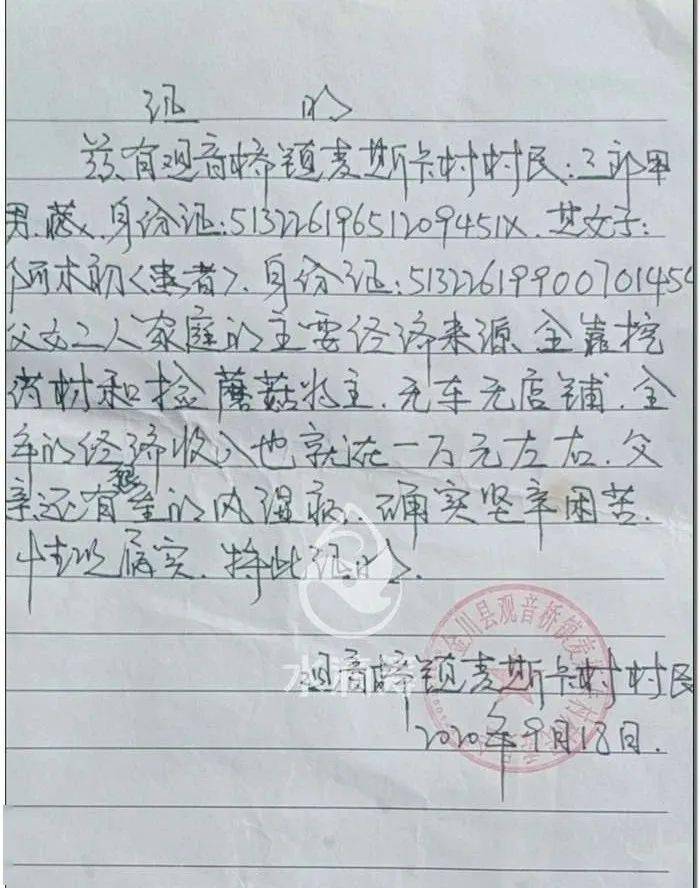 证 明
兹有观音桥镇麦斯卡村村民:三郎甲
男.藏.身份证:51322619651209451X.其女子:
阿木初<患者>.身份证:5132261990070145
父女二人家庭的主要经济来源全靠挖
药材和捡蘑菇为主.无车无店铺.全
年的经济收入也就在一万元左右.父
亲还有严重的风湿病.确实坚辛困苦.
情况属实.特此证明.
金川县观音桥镇麦
水滴筹
观音桥镇麦斯卡村村民
2020年9月18日.